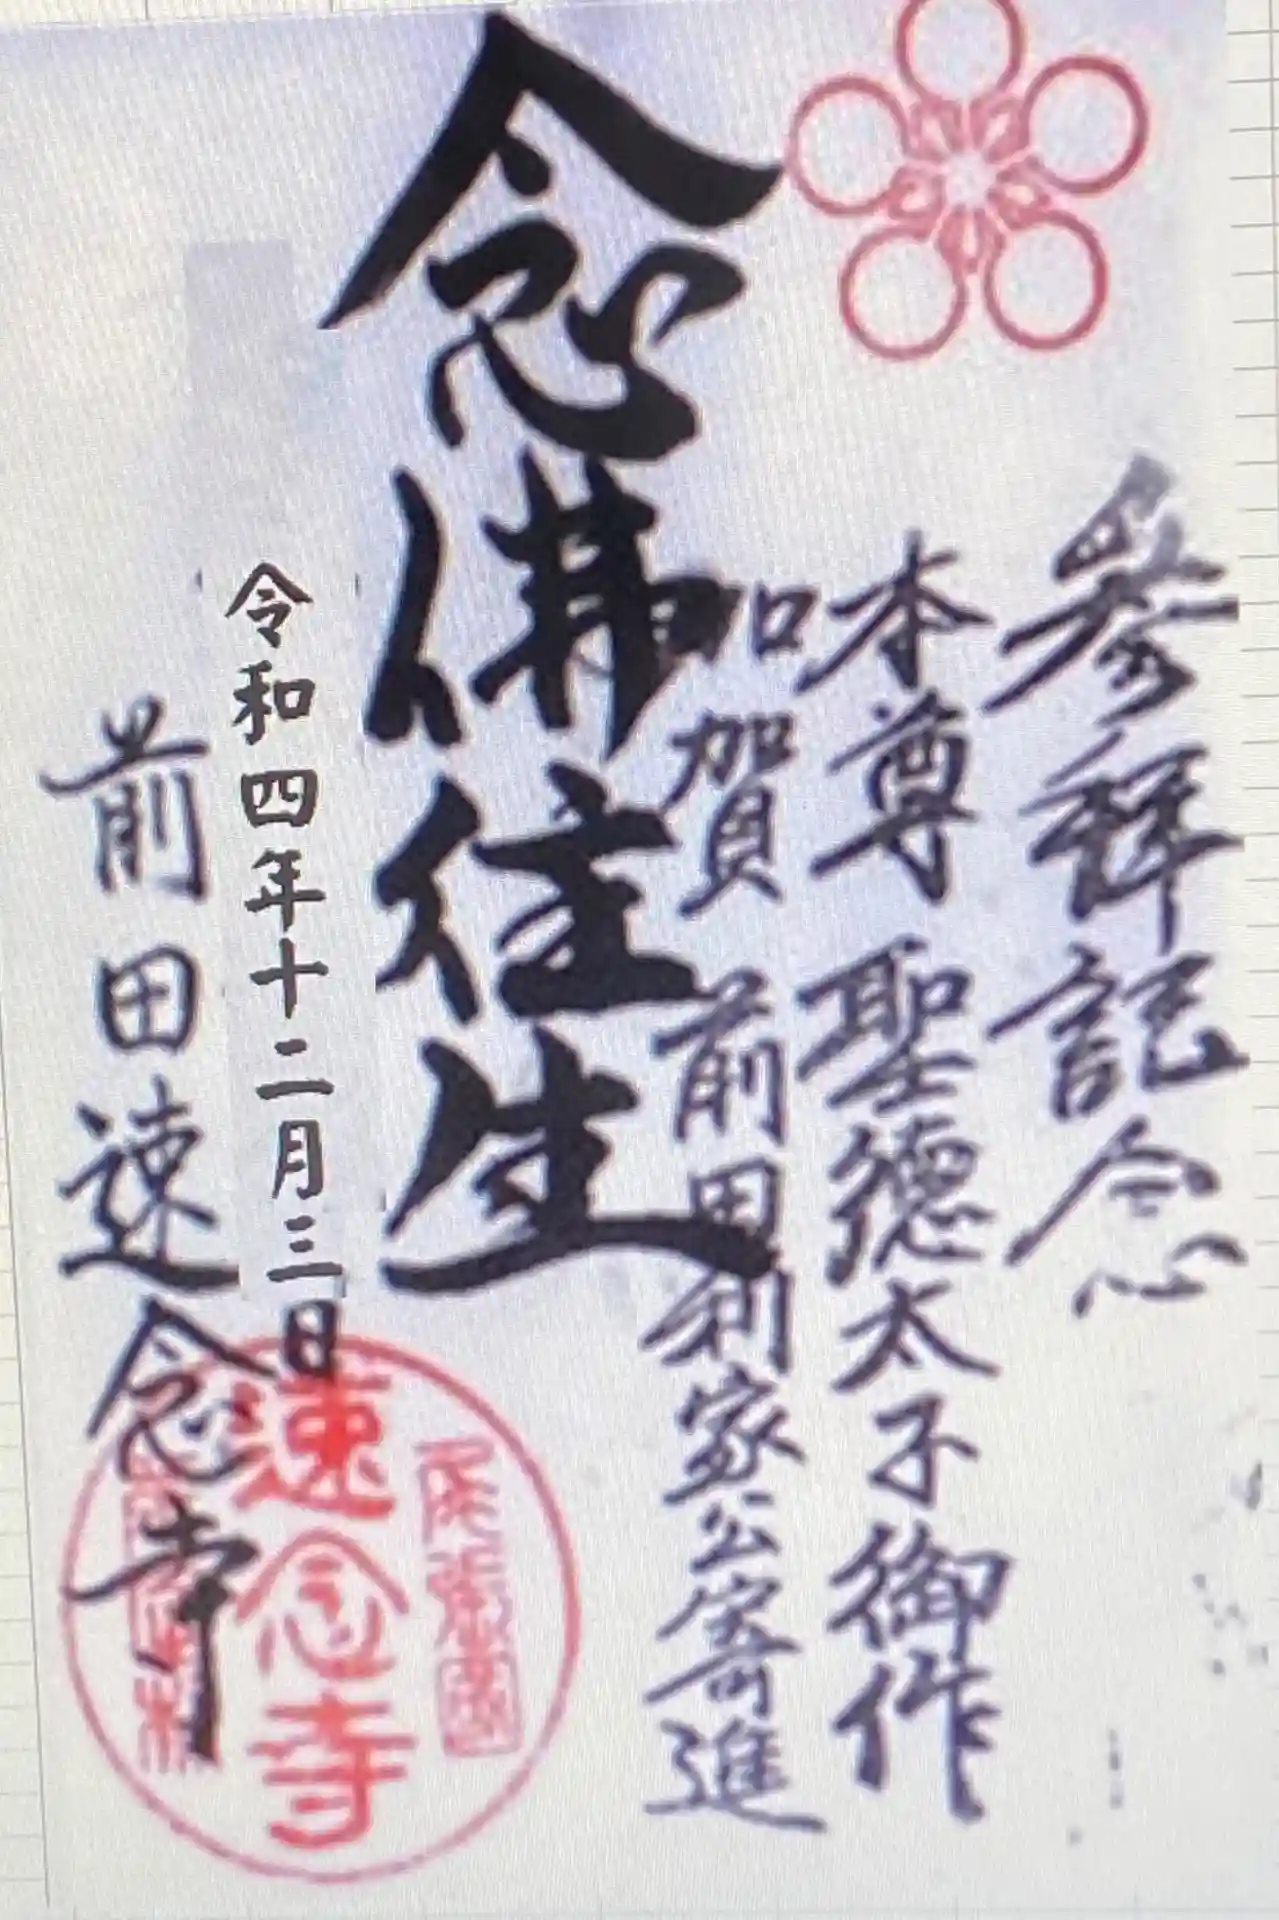 参拝記念
本尊 聖徳太子御作
加賀 前田利家公寄進
念佛往生
令和四年十二月三日
前田速念寺
尾張國
速念寺